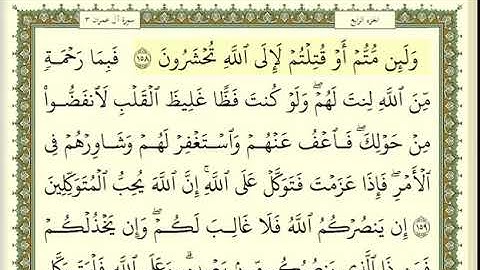 الجزء الرابع
سورة آل عمران ٣
وَلَئِن مُّتُّمْ أَوْ قُتِلْتُمْ لَإِلَى ٱللَّهِ تُحْشَرُونَ ١٥٨ فَبِمَا رَحْمَةٍ
مِّنَ ٱللَّهِ لِنتَ لَهُمْ ۖ وَلَوْ كُنتَ فَظًّا غَلِيظَ ٱلْقَلْبِ لَٱنفَضُّوا۟
مِنْ حَوْلِكَ ۖ فَٱعْفُ عَنْهُمْ وَٱسْتَغْفِرْ لَهُمْ وَشَاوِرْهُمْ فِى
ٱلْأَمْرِ ۖ فَإِذَا عَزَمْتَ فَتَوَكَّلْ عَلَى ٱللَّهِ ۚ إِنَّ ٱللَّهَ يُحِبُّ ٱلْمُتَوَكِّلِينَ
١٥٩ إِن يَنصُرْكُمُ ٱللَّهُ فَلَا غَالِبَ لَكُمْ ۖ وَإِن يَخْذُلْكُمْ
فَمَن ذَا ٱلَّذِى يَنصُرُكُم مِّنۢ بَعْدِهِۦ ۗ وَعَلَى ٱللَّهِ فَلْيَتَوَكَّلِ